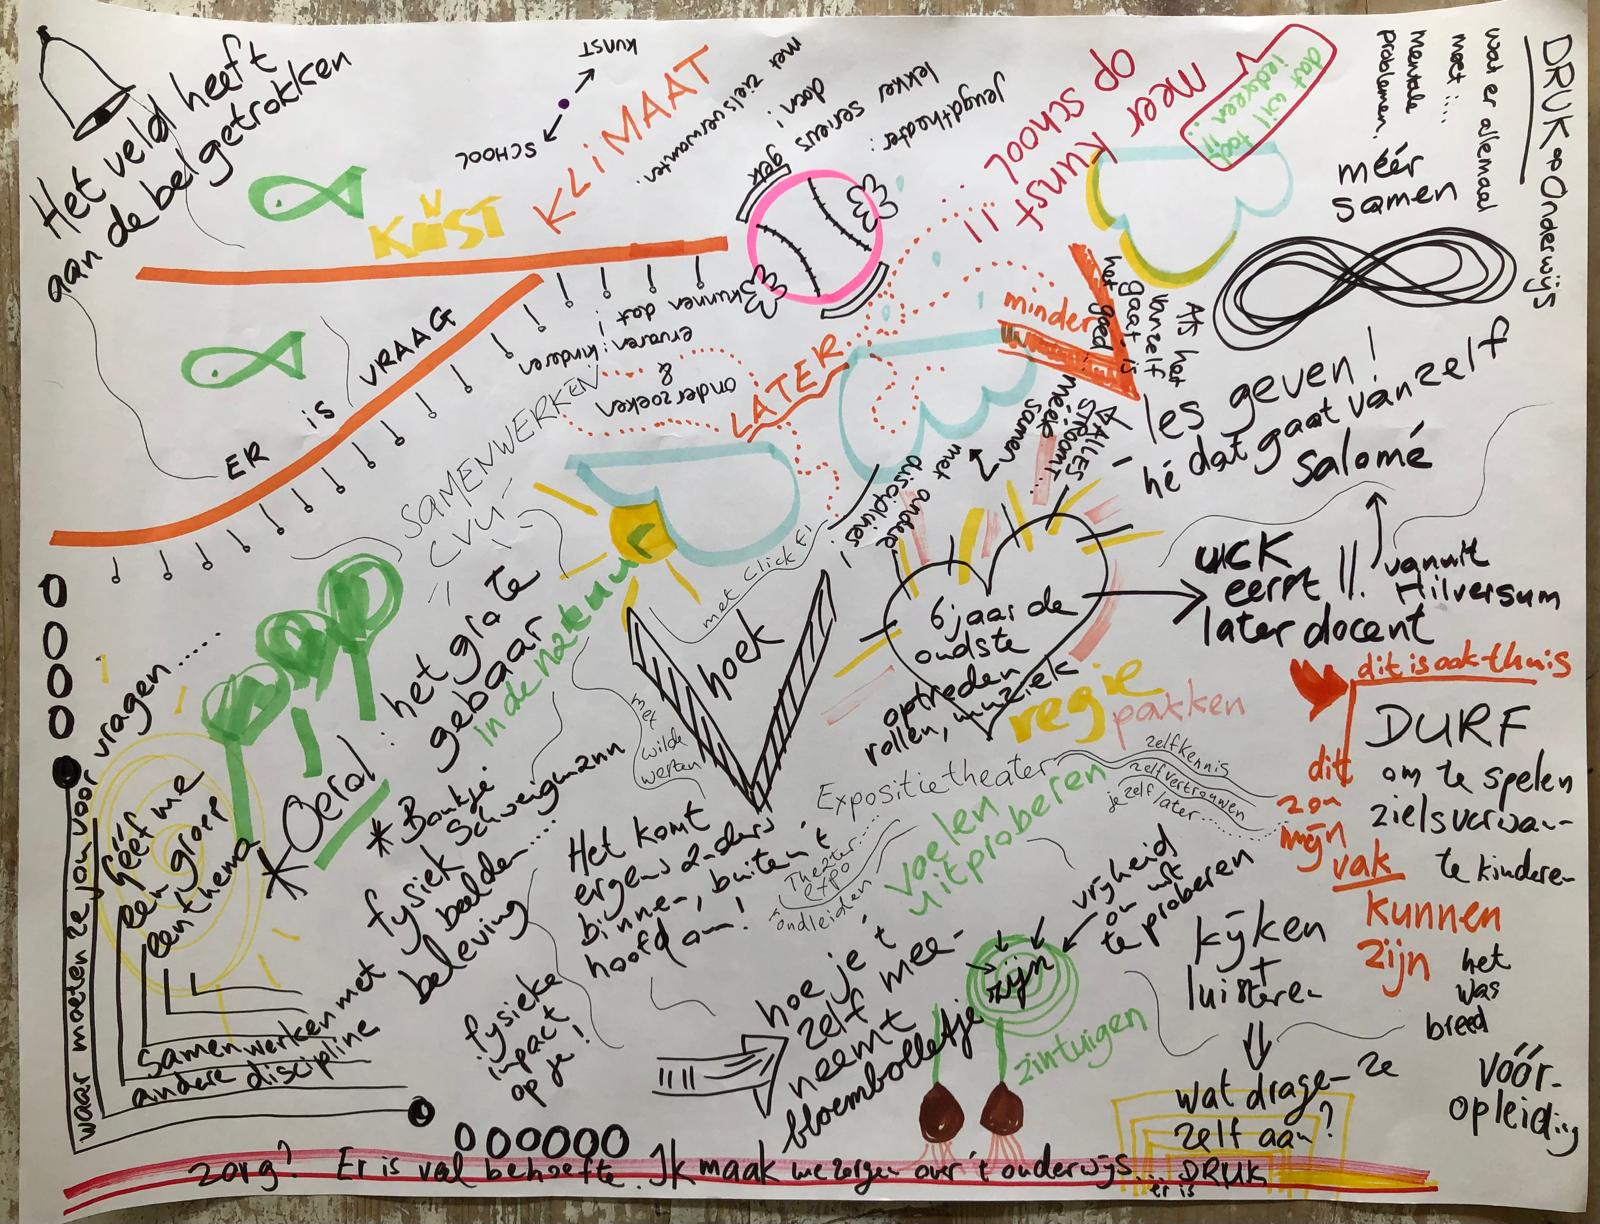 Het veld heeft
aan de bel getrokken
KUNST
SCHOOL
KUNST
KLIMAAT
ER is VRAAG
met zielsverwanten.
Jeugdtheater:
lekker serieus
gek
doen!
meer kunst
op school
!!
dat wil toch
iedereen..
!!
DRUK op Onderwijs
wat er allemaal
moet ....
mentale
problemen.
méér
samen
onderzoeken
&
ervaren! kinderen
kunnen dat
LATER
minder
Als het
vanzelf
gaat is
het goed!
ALLES
STROOMT..
méér
samen
met andere
disciplines!
les geven!
hé dat gaat vanzelf
Salomé
vanuit
Hilversum
UCK
eerst !!
later docent
SAMENWERKEN
CVU
met Click F1
hoek
met
wilde
werken
6 jaar de
oudste
optreden
rollen, muziek
regie
pakken
dit is ook thuis
dit
zou
mijn
vak
kunnen
zijn
DURF
om te spelen
zielsverwan-
te kinderen
het
was
breed
vóór-
opleiding
Expositietheater
zelfkennis
zelfvertrouwen
je zelf later
Theater
expo
rondleiden
voelen
uitproberen
vrijheid
om uit
te proberen
zijn
zintuigen
kijken
+
luisteren
wat dragen ze
zelf aan?
hoe je 't
zelf mee-
neemt
bloembolletje
Het komt
ergens anders
binnen, buiten 't
hoofd om!
het grote
gebaar
in de natuur
* Oerol:
* Bankje
Schweigmann
fysiek
beelden....
beleving
fysieke
impact
op je!
waar moeten ze jou voor vragen.....
Geef me
een groep
een thema
Samenwerken met
andere discipline
zorg? Er is veel behoefte. Ik maak me zorgen over 't onderwijs.. er is DRUK